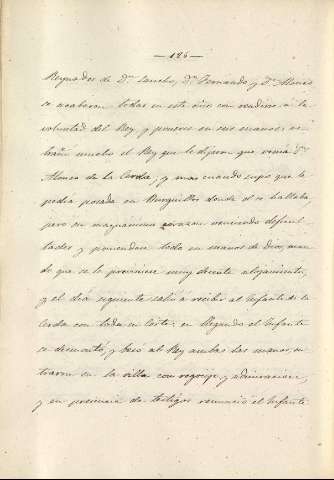 — 126 —
Reynados de Dn. Sancho, Dn. Fernando, y Dn. Alonso
se acabaron todas en este dia con rendirse a la
voluntad del Rey, y ponerse en sus manos: es-
trañó mucho el Rey que le dijeron que venia Dn.
Alonso de la Cerda, y mas cuando supo que le
pedia posada en Burguillos donde el se hallaba,
pero su magnánimo corazon venciendo dificul
tades y poniendose todo en manos de Dios, man
do que se le previniese muy decente alojamiento,
y el dia siguiente salió a recibir al Infante de la
Cerda con toda su Corte: en llegando el Infante
se desmontó, y besó al Rey ambas las manos, en
traron en la villa con regocijo, y admiracion,
y en presencia de testigos renunció el Infante